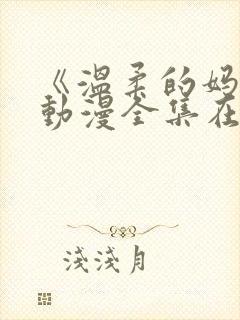 《温柔的妈
动漫全集在
浅浅月